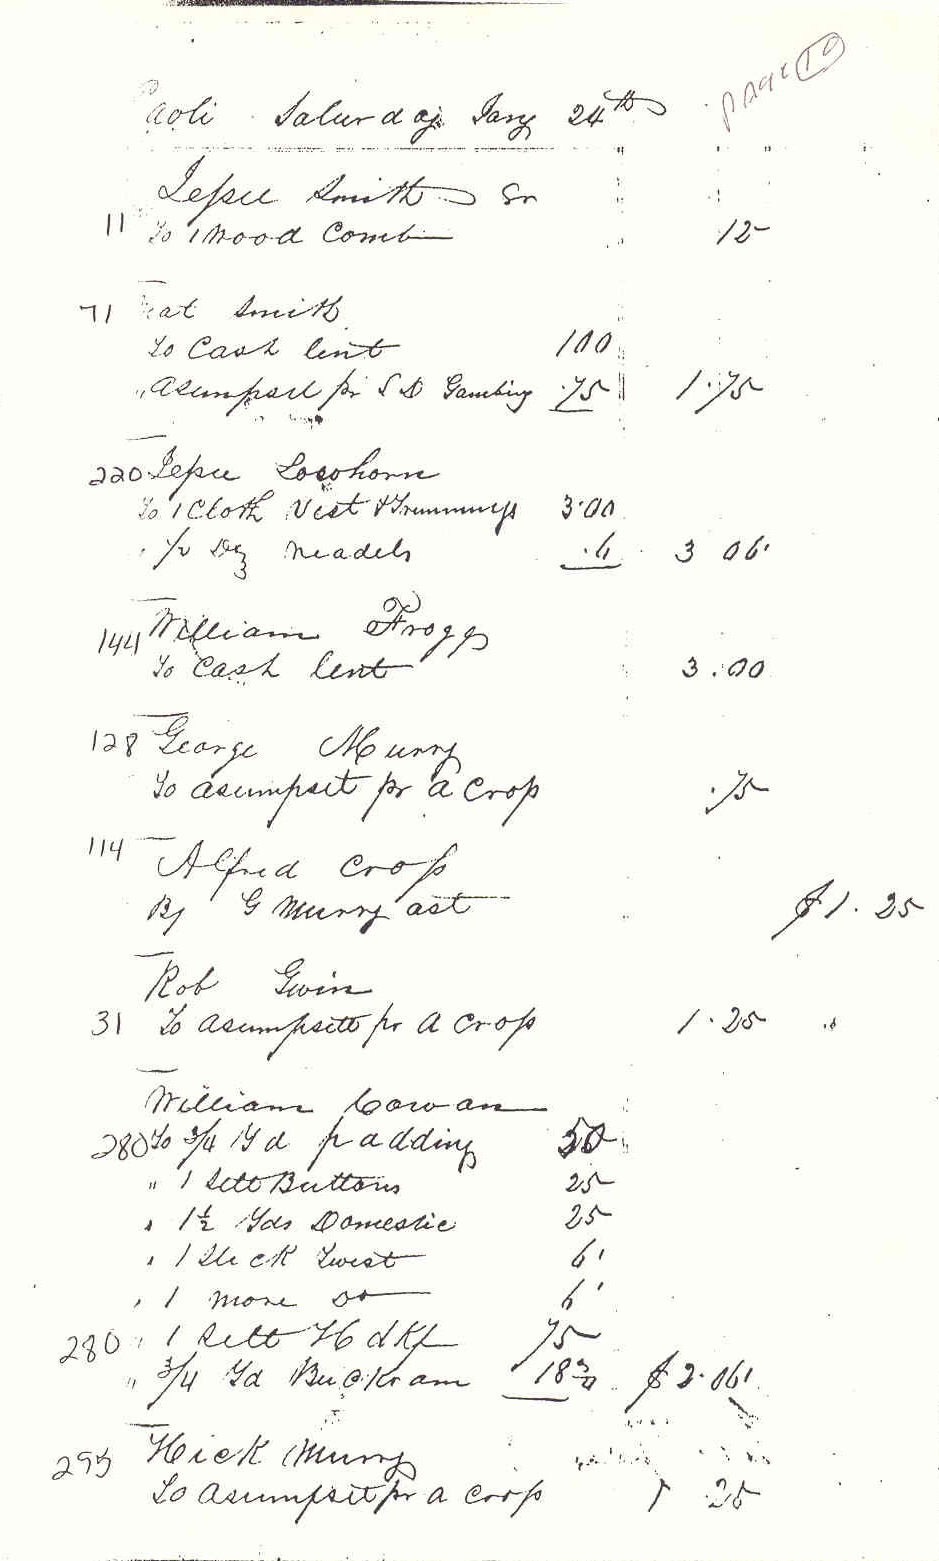 page 10
Paoli Saturday Jany 24th
Jessee Smith Sr
11 To 1 Wood Comb 12
71 Nat Smith
To Cash lent 100
" Asumpsit pr S D Gambing .75 1.75
220 Jesse Locohorn
To 1 Cloth Vest & Trimmings 3.00
" 1/2 Doz Neadels .6 3 06
144 William Frogg
To Cash lent 3.00
128 George Murry
To asumpset pr A Crop .75
114 Alfred Crop
By G Murry ast $1.25
Rob Gwin
31 To asumpsett pr A Crop 1.25 "
William Cowan
280 To 3/4 Yd padding 50
" 1 Sett Buttons 25
" 1 1/2 Yds Domestic 25
" 1 Stick Twist 6
" 1 more Do 6
280 " 1 Sett Hdkf 75
" 3/4 Yd Buckram 18 3/4 $2.06
295 Hick Murry
To Asumpset pr a crop 1 25